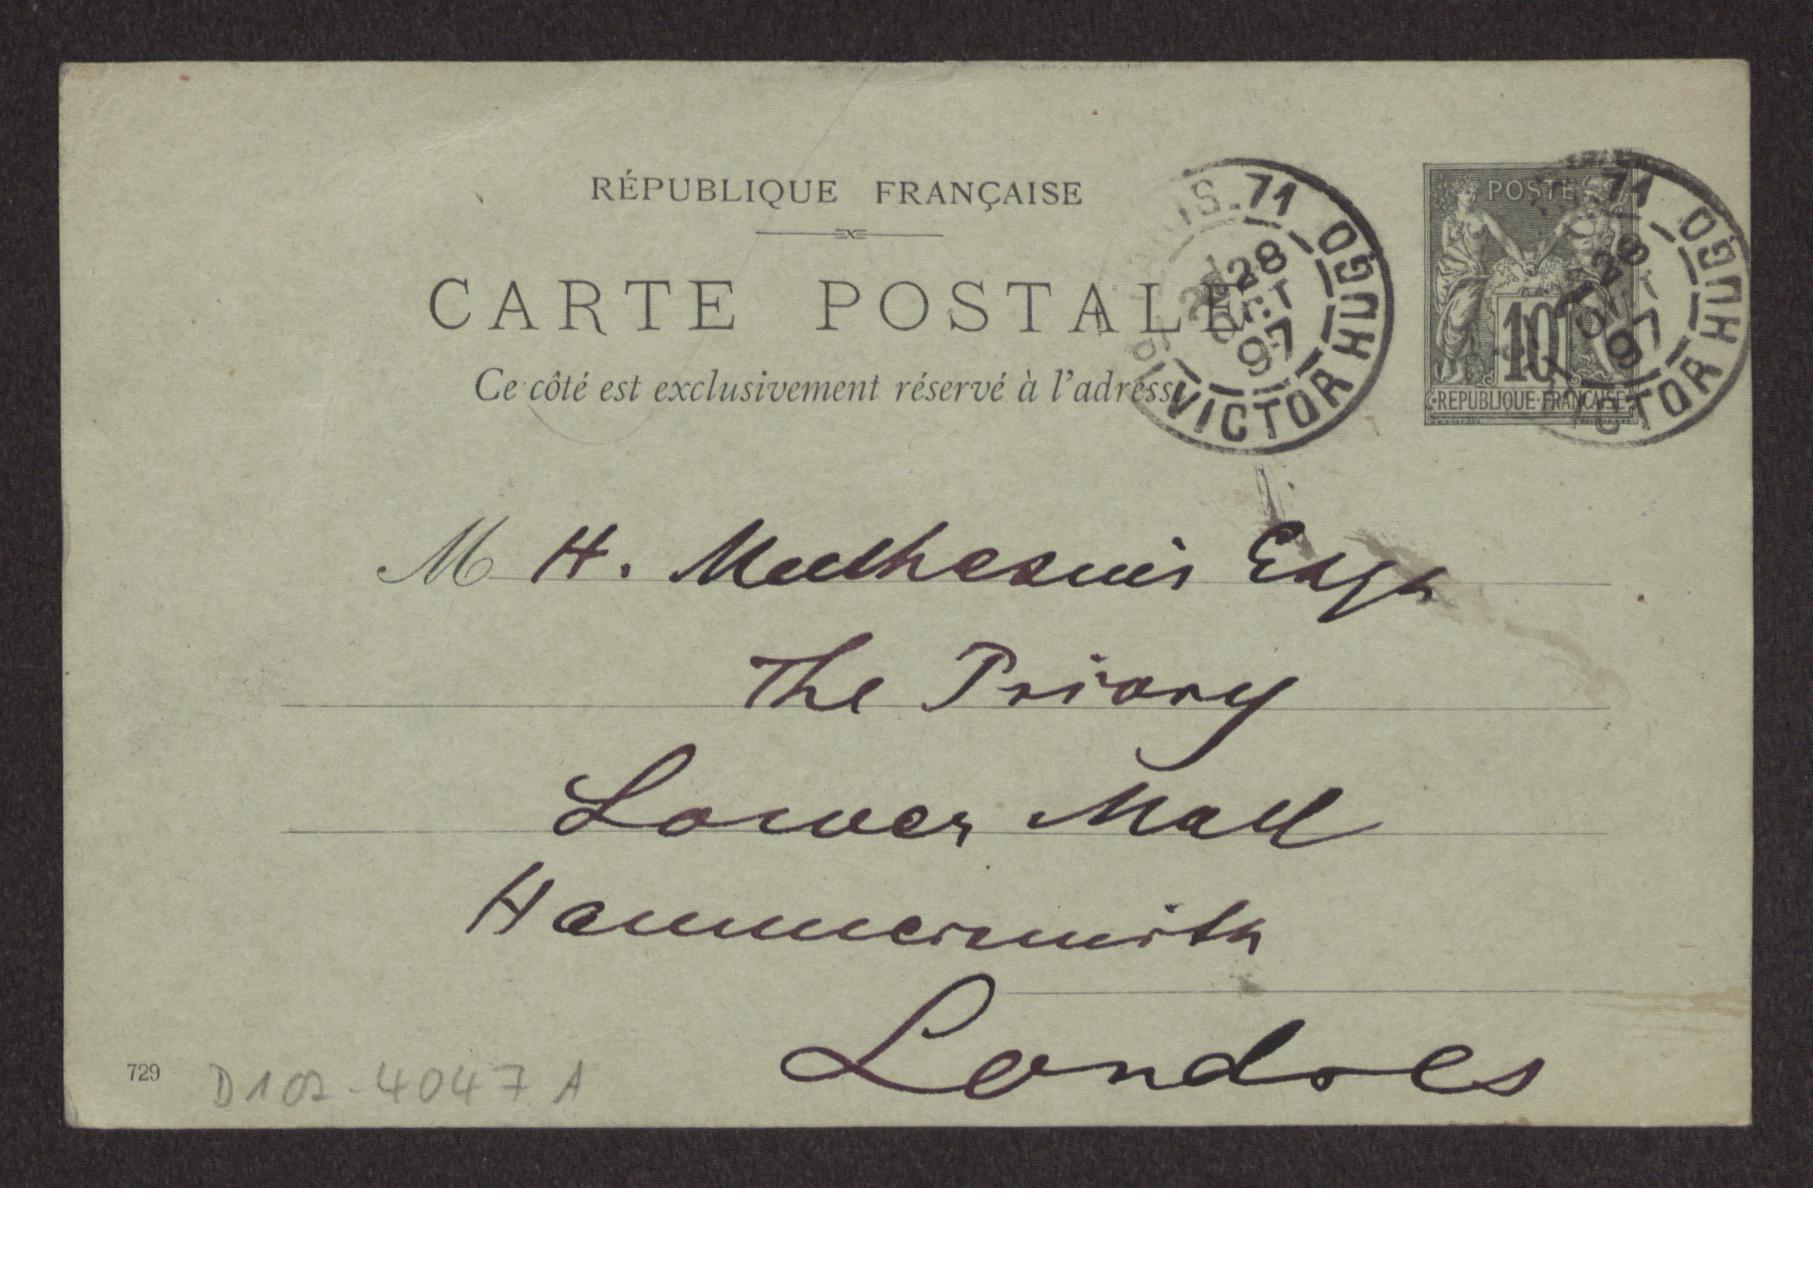 RÉPUBLIQUE FRANÇAISE
CARTE POSTALE
Ce côté est exclusivement réservé à l'adresse
PARIS.71
Pl VICTOR HUGO
28
97
POSTE
10
REPUBLIQUE FRANÇAISE
71
VICTOR HUGO
M H. Muthesius Esqr
The Priory
Lower Mall
Hammersmith
Londres
729
D102-4047 A